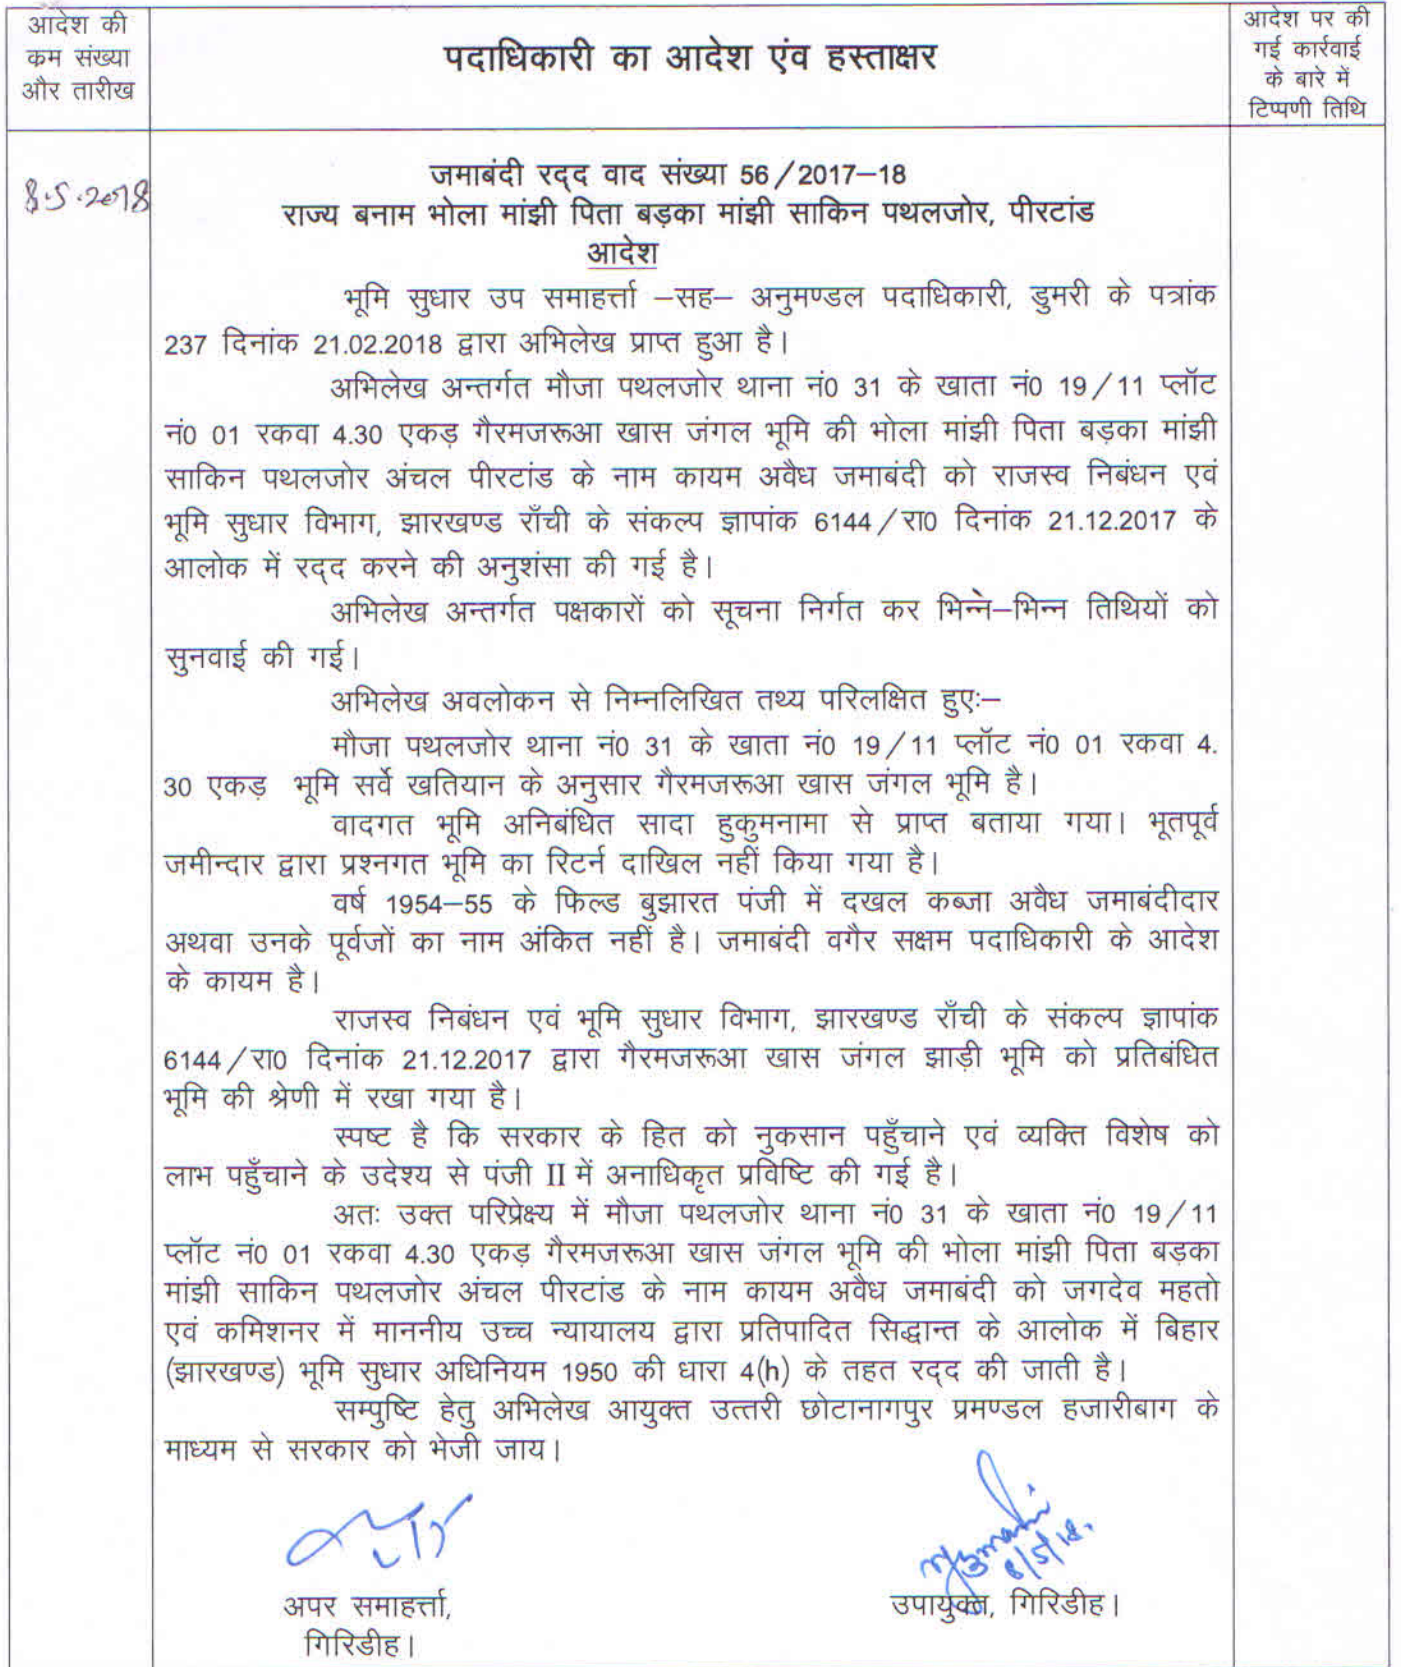 आदेश की
कम संख्या
और तारीख
पदाधिकारी का आदेश एंव हस्ताक्षर
आदेश पर की
गई कार्रवाई
के बारे में
टिप्पणी तिथि
8.5.2018
जमाबंदी रद्द वाद संख्या 56/2017–18
राज्य बनाम भोला मांझी पिता बड़का मांझी साकिन पथलजोर, पीरटांड
आदेश
भूमि सुधार उप समाहर्त्ता –सह– अनुमण्डल पदाधिकारी, डुमरी के पत्रांक
237 दिनांक 21.02.2018 द्वारा अभिलेख प्राप्त हुआ है।
अभिलेख अन्तर्गत मौजा पथलजोर थाना नं0 31 के खाता नं0 19/11 प्लॉट
नं0 01 रकवा 4.30 एकड़ गैरमजरूआ खास जंगल भूमि की भोला मांझी पिता बड़का मांझी
साकिन पथलजोर अंचल पीरटांड के नाम कायम अवैध जमाबंदी को राजस्व निबंधन एवं
भूमि सुधार विभाग, झारखण्ड राँची के संकल्प ज्ञापांक 6144/रा0 दिनांक 21.12.2017 के
आलोक में रद्द करने की अनुशंसा की गई है।
अभिलेख अन्तर्गत पक्षकारों को सूचना निर्गत कर भिन्ने–भिन्न तिथियों को
सुनवाई की गई।
अभिलेख अवलोकन से निम्नलिखित तथ्य परिलक्षित हुएः–
मौजा पथलजोर थाना नं0 31 के खाता नं0 19/11 प्लॉट नं0 01 रकवा 4.
30 एकड़ भूमि सर्वे खतियान के अनुसार गैरमजरूआ खास जंगल भूमि है।
वादगत भूमि अनिबंधित सादा हुकुमनामा से प्राप्त बताया गया। भूतपूर्व
जमीन्दार द्वारा प्रश्नगत भूमि का रिटर्न दाखिल नहीं किया गया है।
वर्ष 1954–55 के फिल्ड बुझारत पंजी में दखल कब्जा अवैध जमाबंदीदार
अथवा उनके पूर्वजों का नाम अंकित नहीं है। जमाबंदी वगैर सक्षम पदाधिकारी के आदेश
के कायम है।
राजस्व निबंधन एवं भूमि सुधार विभाग, झारखण्ड राँची के संकल्प ज्ञापांक
6144/रा0 दिनांक 21.12.2017 द्वारा गैरमजरूआ खास जंगल झाड़ी भूमि को प्रतिबंधित
भूमि की श्रेणी में रखा गया है।
स्पष्ट है कि सरकार के हित को नुकसान पहुँचाने एवं व्यक्ति विशेष को
लाभ पहुँचाने के उदेश्य से पंजी II में अनाधिकृत प्रविष्टि की गई है।
अतः उक्त परिप्रेक्ष्य में मौजा पथलजोर थाना नं0 31 के खाता नं0 19/11
प्लॉट नं0 01 रकवा 4.30 एकड़ गैरमजरूआ खास जंगल भूमि की भोला मांझी पिता बड़का
मांझी साकिन पथलजोर अंचल पीरटांड के नाम कायम अवैध जमाबंदी को जगदेव महतो
एवं कमिशनर में माननीय उच्च न्यायालय द्वारा प्रतिपादित सिद्धान्त के आलोक में बिहार
(झारखण्ड) भूमि सुधार अधिनियम 1950 की धारा 4(h) के तहत रद्द की जाती है।
सम्पुष्टि हेतु अभिलेख आयुक्त उत्तरी छोटानागपुर प्रमण्डल हजारीबाग के
माध्यम से सरकार को भेजी जाय।
8/5/18.
अपर समाहर्त्ता,
गिरिडीह।
उपायुक्त, गिरिडीह।